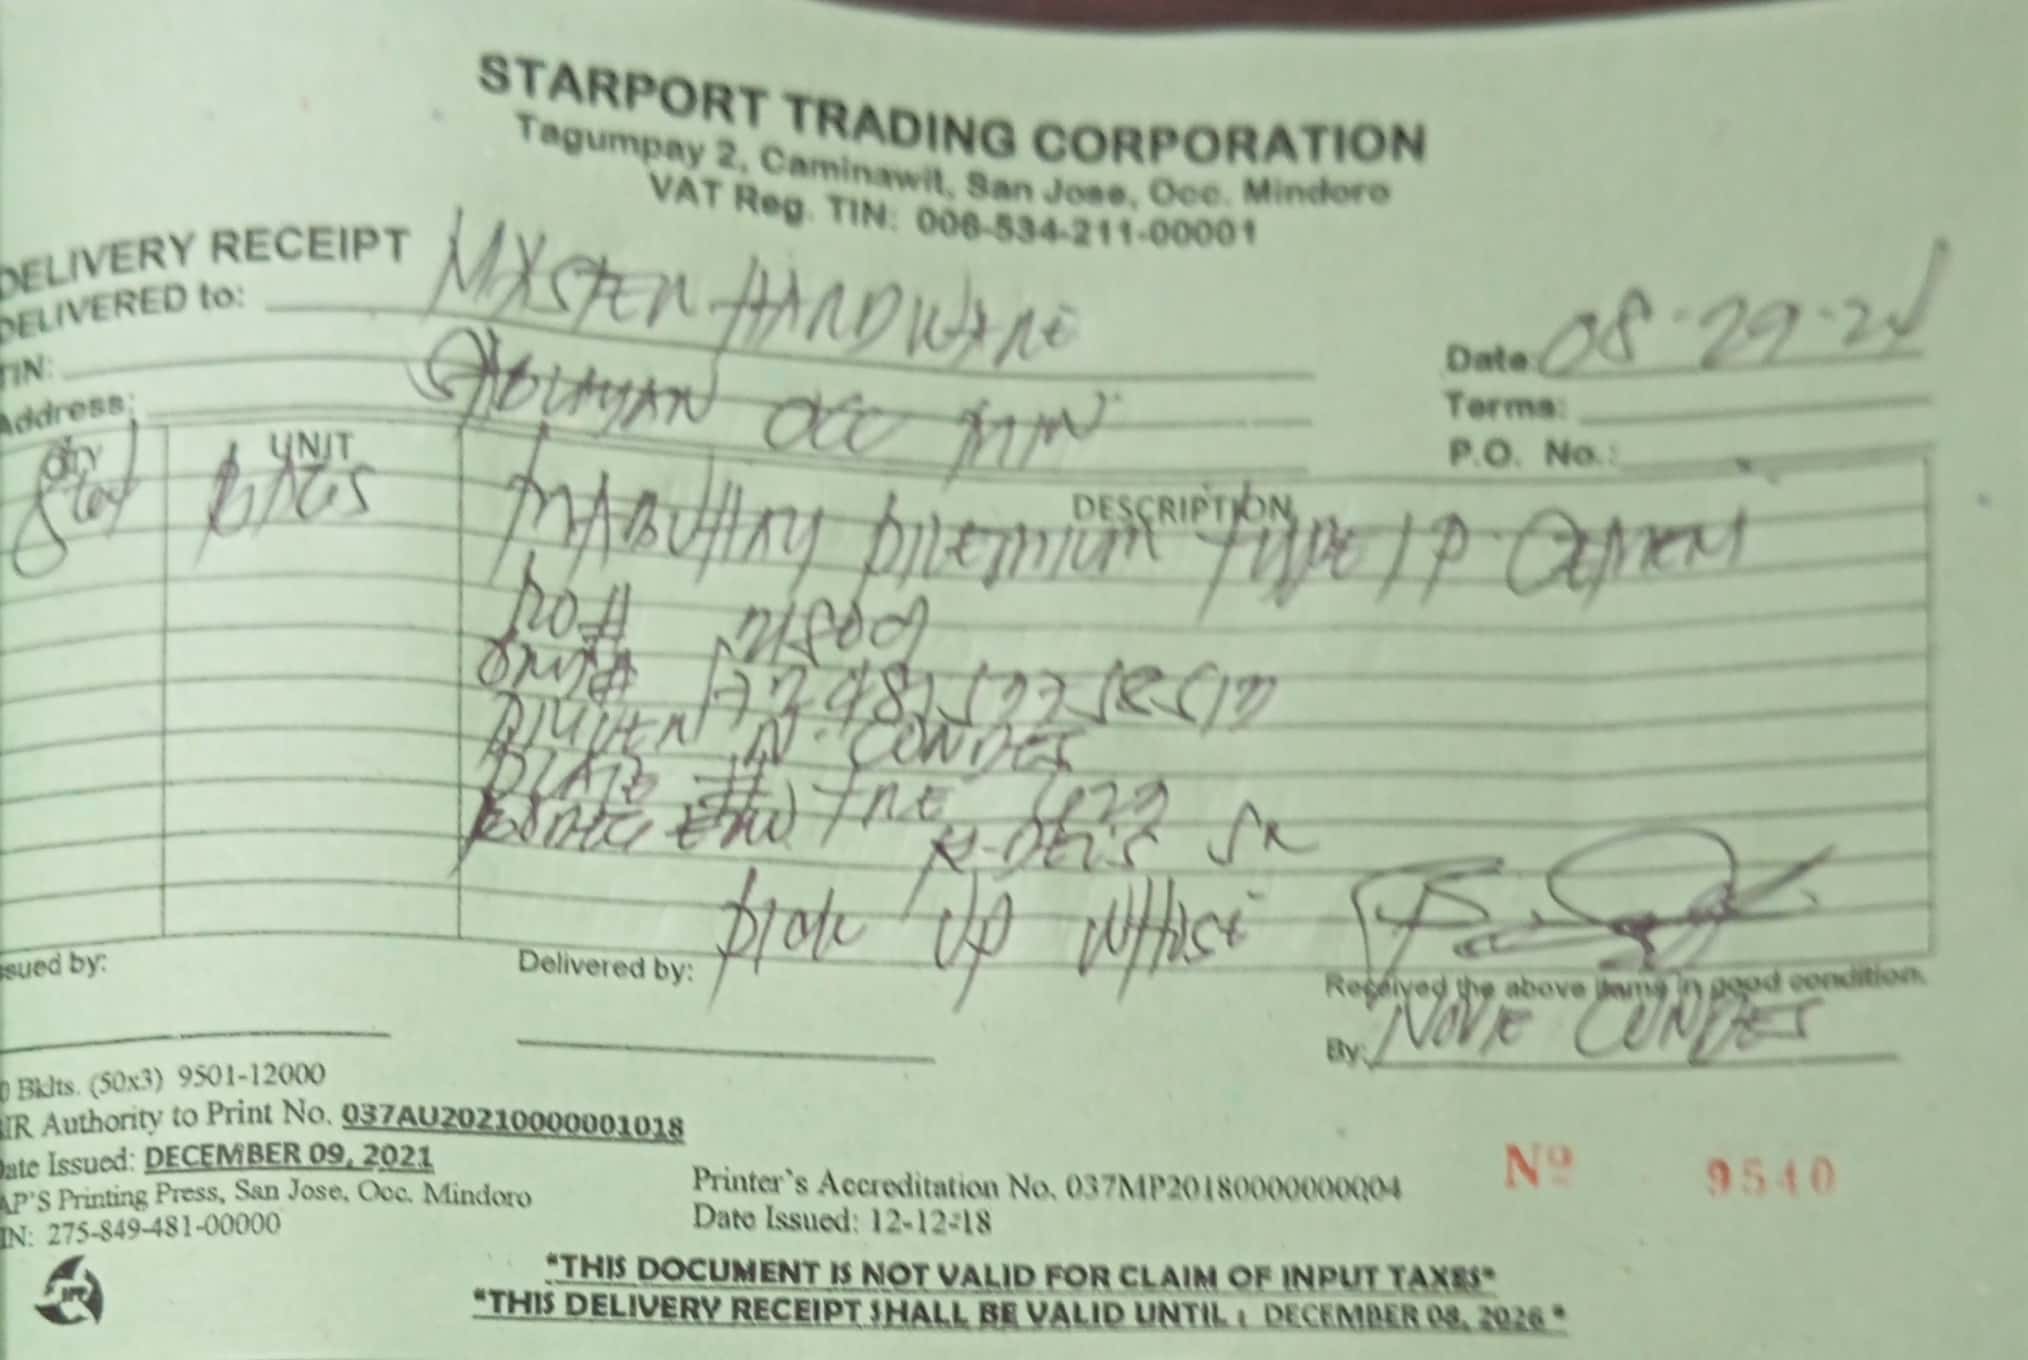 STARPORT TRADING CORPORATION
Tagumpay 2, Caminawit, San Jose, Occ. Mindoro
VAT Reg. TIN: 006-534-211-00001
DELIVERY RECEIPT
DELIVERED to: MXSTER HARDWARE
TIN:
Address: OCC MIN
Date: 08-29-24
Terms:
P.O. No.:
Qty UNIT DESCRIPTION
BAGS MABUHAY PREMIUM TYPE 1P CEMENT
PO# 21809
DRIVER N. CONDES
PLATE # TNE 422
PICK UP WHSE
ssued by:
Delivered by:
Received the above items in good condition.
By: NOVIE CONDES
0 Bklts. (50x3) 9501-12000
IR Authority to Print No. 037AU20210000001018
Date Issued: DECEMBER 09, 2021
AP'S Printing Press, San Jose, Occ. Mindoro
IN: 275-849-481-00000
Printer's Accreditation No. 037MP20180000000004
Date Issued: 12-12-18
Nº 9540
"THIS DOCUMENT IS NOT VALID FOR CLAIM OF INPUT TAXES"
"THIS DELIVERY RECEIPT SHALL BE VALID UNTIL : DECEMBER 08, 2026 "